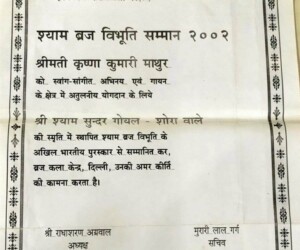 श्याम ब्रज विभूति सम्मान २००२
श्रीमती कृष्णा कुमारी माथुर
को स्वांग-सांगीत, अभिनय एवं गायन
के क्षेत्र में अतुलनीय योगदान के लिये
श्री श्याम सुन्दर गोयल - शोरा वाले
की स्मृति में स्थापित श्याम ब्रज विभूति के
अखिल भारतीय पुरस्कार से सम्मानित कर,
ब्रज कला केन्द्र, दिल्ली, उनकी अमर कीर्ति
की कामना करता है।
श्री राधाशरण अग्रवाल
अध्यक्ष
मुरारी लाल गर्ग
सचिव